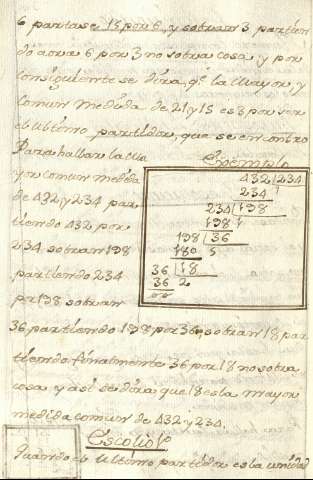 6 partase 15 por 6, y sobran 3 partien
do aora 6 por 3 no sobra cosa y por
consiguiente se dira, qe la Mayor y
Comun medida de 21 y 15 es 3 por ser
el ultimo partidor, que se encontro
Exemplo
Para hallar la Ma
yor comun medida
de 432 y 234 par
tiendo 432 por
234 sobran 198
partiendo 234
por 198 sobran
432 | 234
234 1
234 | 198
198 1
198 | 36
180 5
36 | 18
36 2
00
36, partiendo 198 por 36, sobran 18 par
tiendo finalmente 36 por 18 no sobra
cosa y asi se dira que 18 es la mayor
medida comun de 432 y 234.
Escolio 1º
Quando el ultimo partidor es la unidad